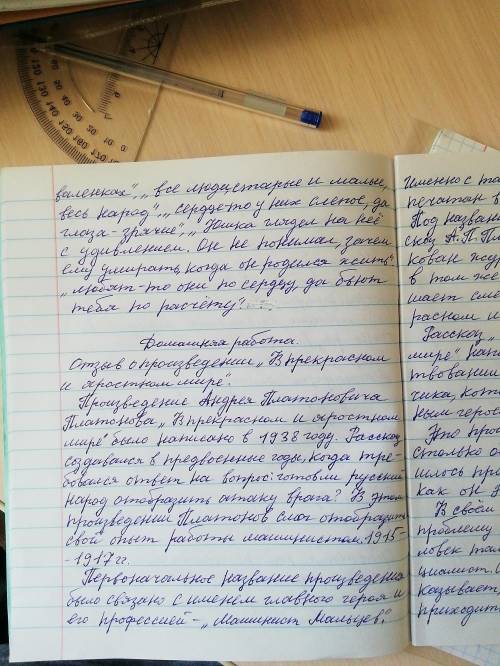 валенках", "все люди, старые и малые,
весь народ", "сердце-то у них слепое, да
глаза - зрячие", "Юшка глядел на неё
с удивлением. Он не понимал, зачем
ему умирать, когда он родился жить",
"любят-то они по сердцу, да бьют
тебя по расчёту".
Домашняя работа.
Отзыв о произведении "В прекрасном
и яростном мире".
Произведение Андрея Платоновича
Платонова "В прекрасном и яростном
мире" было написано в 1938 году. Рассказ
создавался в предвоенные годы, когда тре-
бовался ответ на вопрос: готов ли русский
народ отобразить атаку врага? В этом
произведении Платонов смог отобразить
свой опыт работы машинистом. 1915-
-1917 гг.
Первоначальное название произведения
было связано с именем главного героя и
его профессией - "Машинист Мальцев".
Именно с та
печатан в
Под назван
скоу А.П. Пла
кован жур
в том же
шает сме
расном и
Рассказ "
мире" напи
ствовании
чика, кото
ным герое
Это про
столько о
шилось пр
как он
В своём
проблему
ловек тал
циалист.
казывает,
приходит